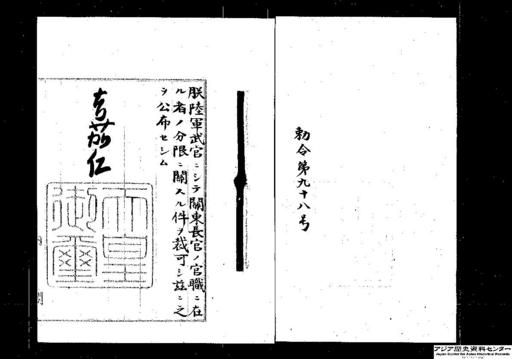 勅令第九十八号
朕陸軍武官ニシテ関東長官ノ官職ニ在
ル者ノ分限ニ関スル件ヲ裁可シ茲ニ之
ヲ公布セシム
嘉仁
天皇
御璽
アジア歴史資料センター
Japan Center for Asian Historical Records